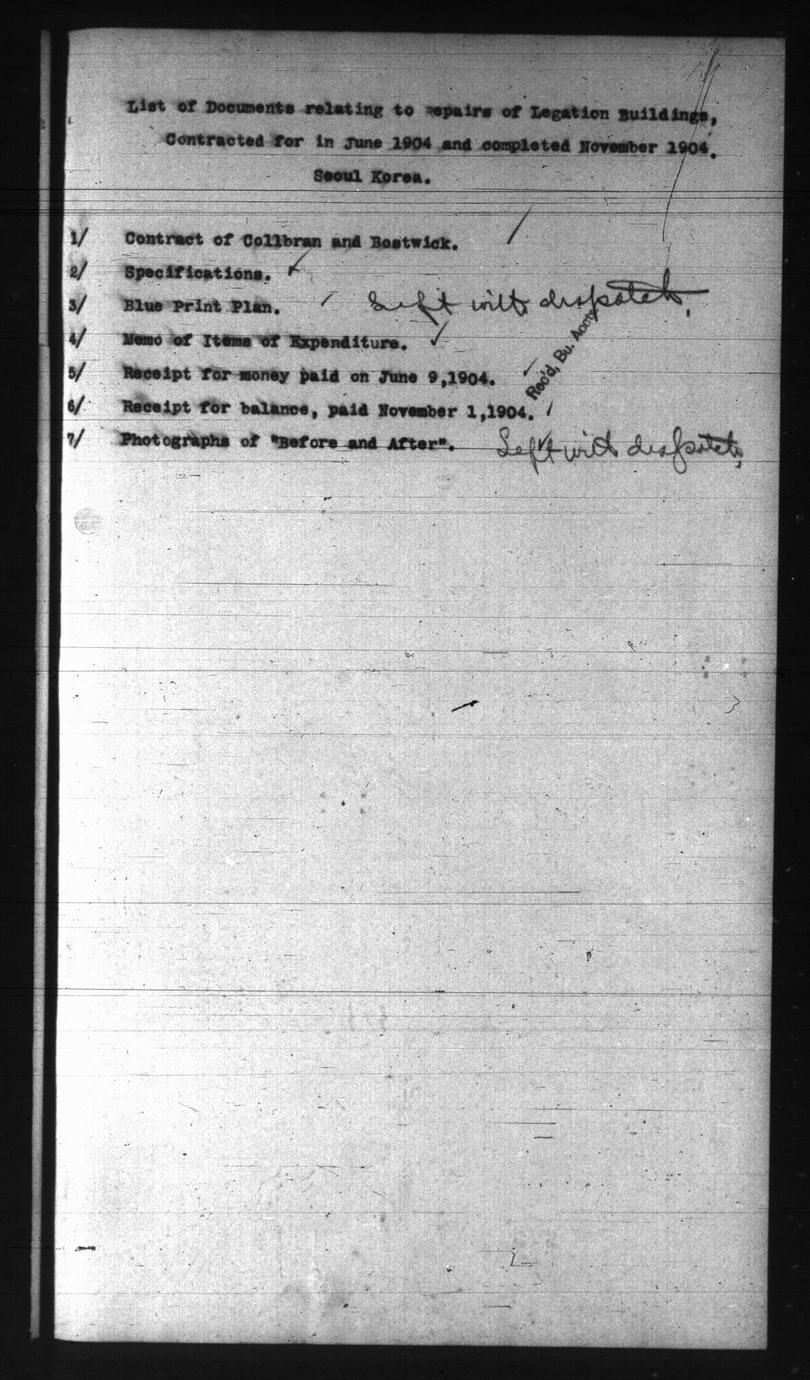 List of Documents relating to repairs of Legation Buildings,
Contracted for in June 1904 and completed November 1904.
Seoul Korea.
1/ Contract of Collbran and Bostwick.
2/ Specifications.
3/ Blue Print Plan. Left with despatch.
4/ Memo of Items of Expenditure.
5/ Receipt for money paid on June 9,1904.
Rec'd, Bu. Accts
6/ Receipt for balance, paid November 1,1904.
7/ Photographs of "Before and After". Left with despatch,